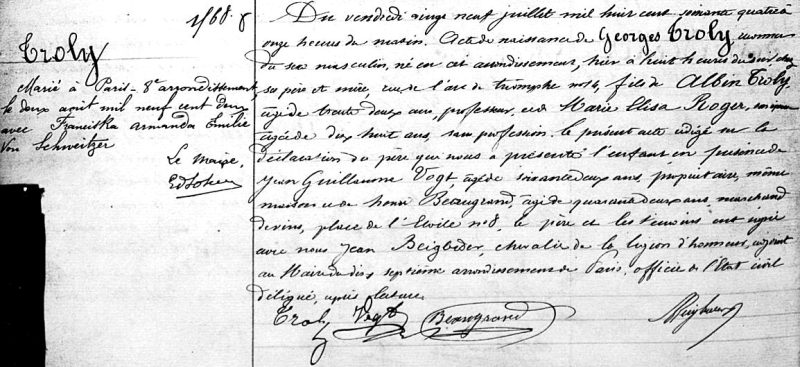 1568. 8
Troly
Marié à Paris - 8e arrondissement,
le deux avril mil neuf cent deux
avec Franciska Armanda Emilie
Von Schweitzer
Le Maire,
Du vendredi vingt neuf juillet mil huit cent soixante quatre à
onze heures du matin. Acte de naissance de Georges Troly,
du sexe masculin, né en cet arrondissement, hier à huit heures du soir, chez
ses père et mère, rue de l'arc de triomphe no 14, fils de Albin Troly,
âgé de trente deux ans, professeur, et de Marie Elisa Roger, son épouse
âgée de dix huit ans, sans profession. le présent acte rédigé sur la
déclaration du père qui nous a présenté l'enfant en présence de
Jean Guillaume Vogt, âgé de soixante deux ans, propriétaire, même
maison et de henri Beaugrand, âgé de quarante deux ans, marchand
de vins, place de l'Etoile no 8, le père et les témoins ont signé
avec nous Jean Beigbeder, chevalier de la légion d'honneur, adjoint
au Maire du dix septième arrondissement de Paris, officier de l'Etat civil
délégué, après lecture.
Troly Vogt Beaugrand